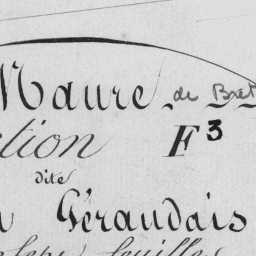 Maure de Bret
ction F 3
dite
Géraudais
feuilles